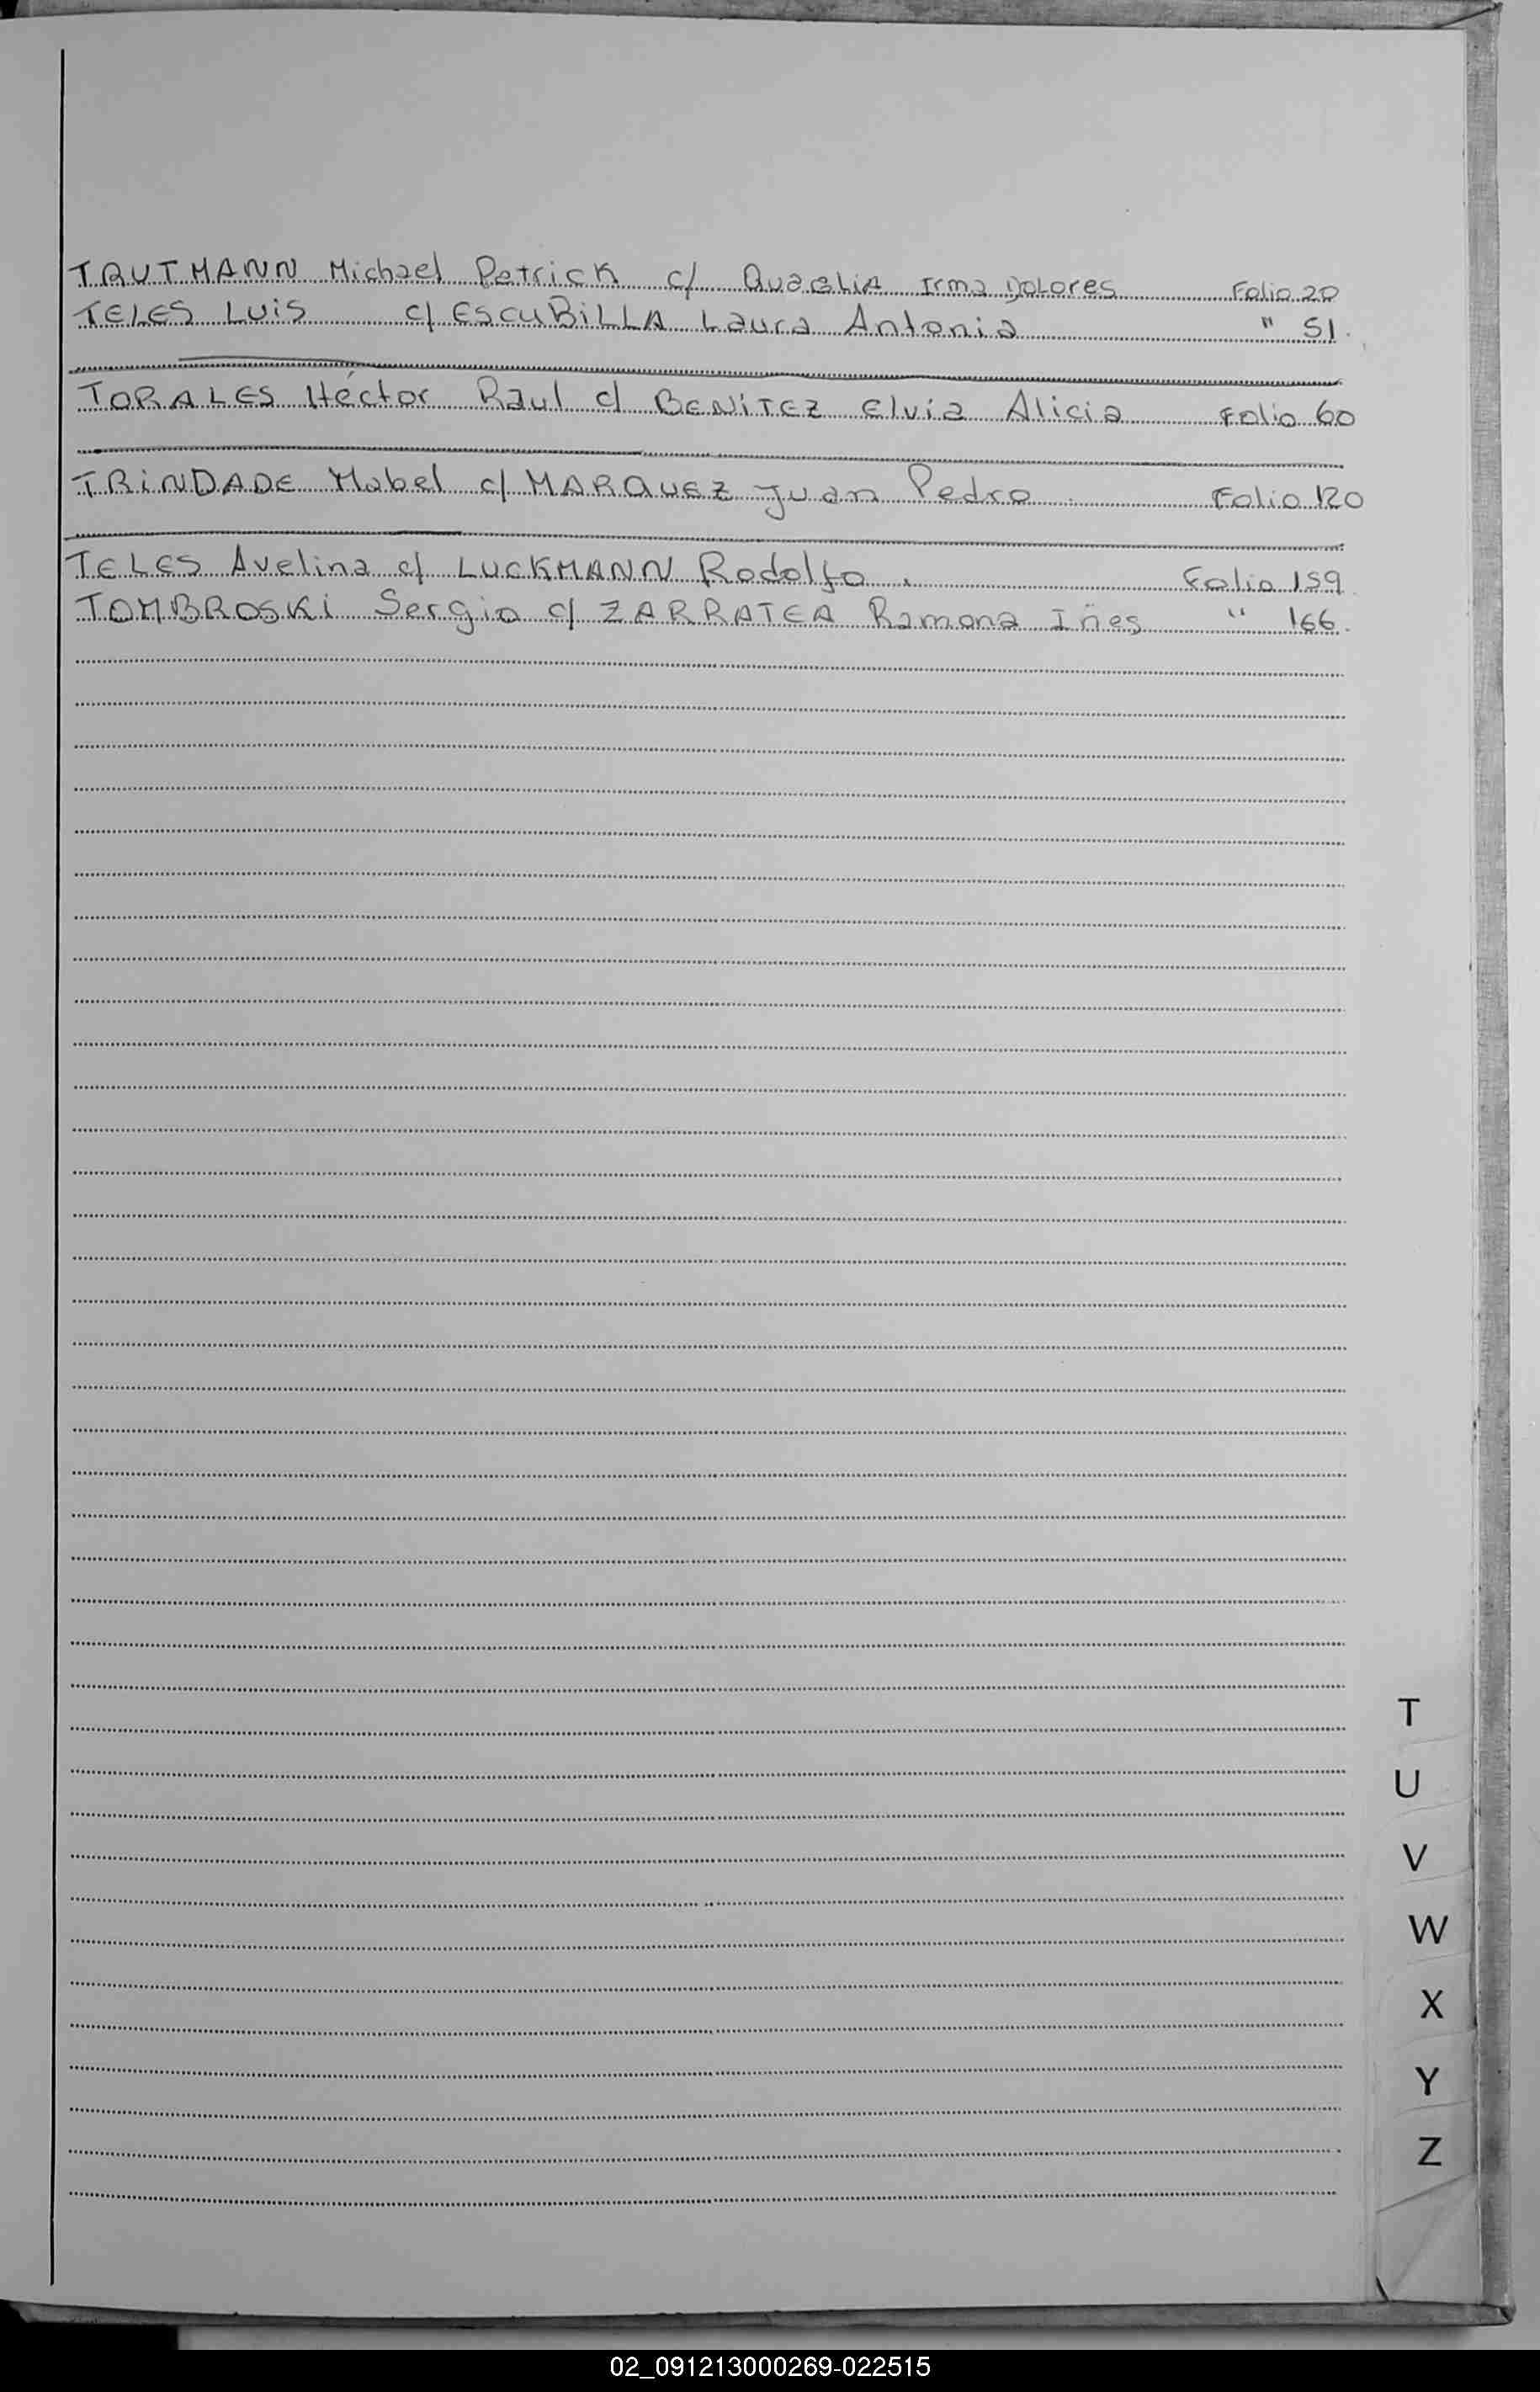 TRUTMANN Michael Patrick c/ QuaGLIA Irma DoLores Folio 20
TELES LUiS c/ EscuBiLLA Laura Antonia " 51.
TORALES Héctor Raul c/ BENiTEZ Elvia Alicia Folio 60
TRiNDADE Mabel c/ MARQUEZ Juan Pedro. Folio 120
TELES Avelina c/ LUCKMANN Rodolfo. Folio 159
TOMBROSKi Sergio c/ ZARRATEA Ramona Iñes " 166.
T
U
V
W
X
Y
Z
02_091213000269-022515